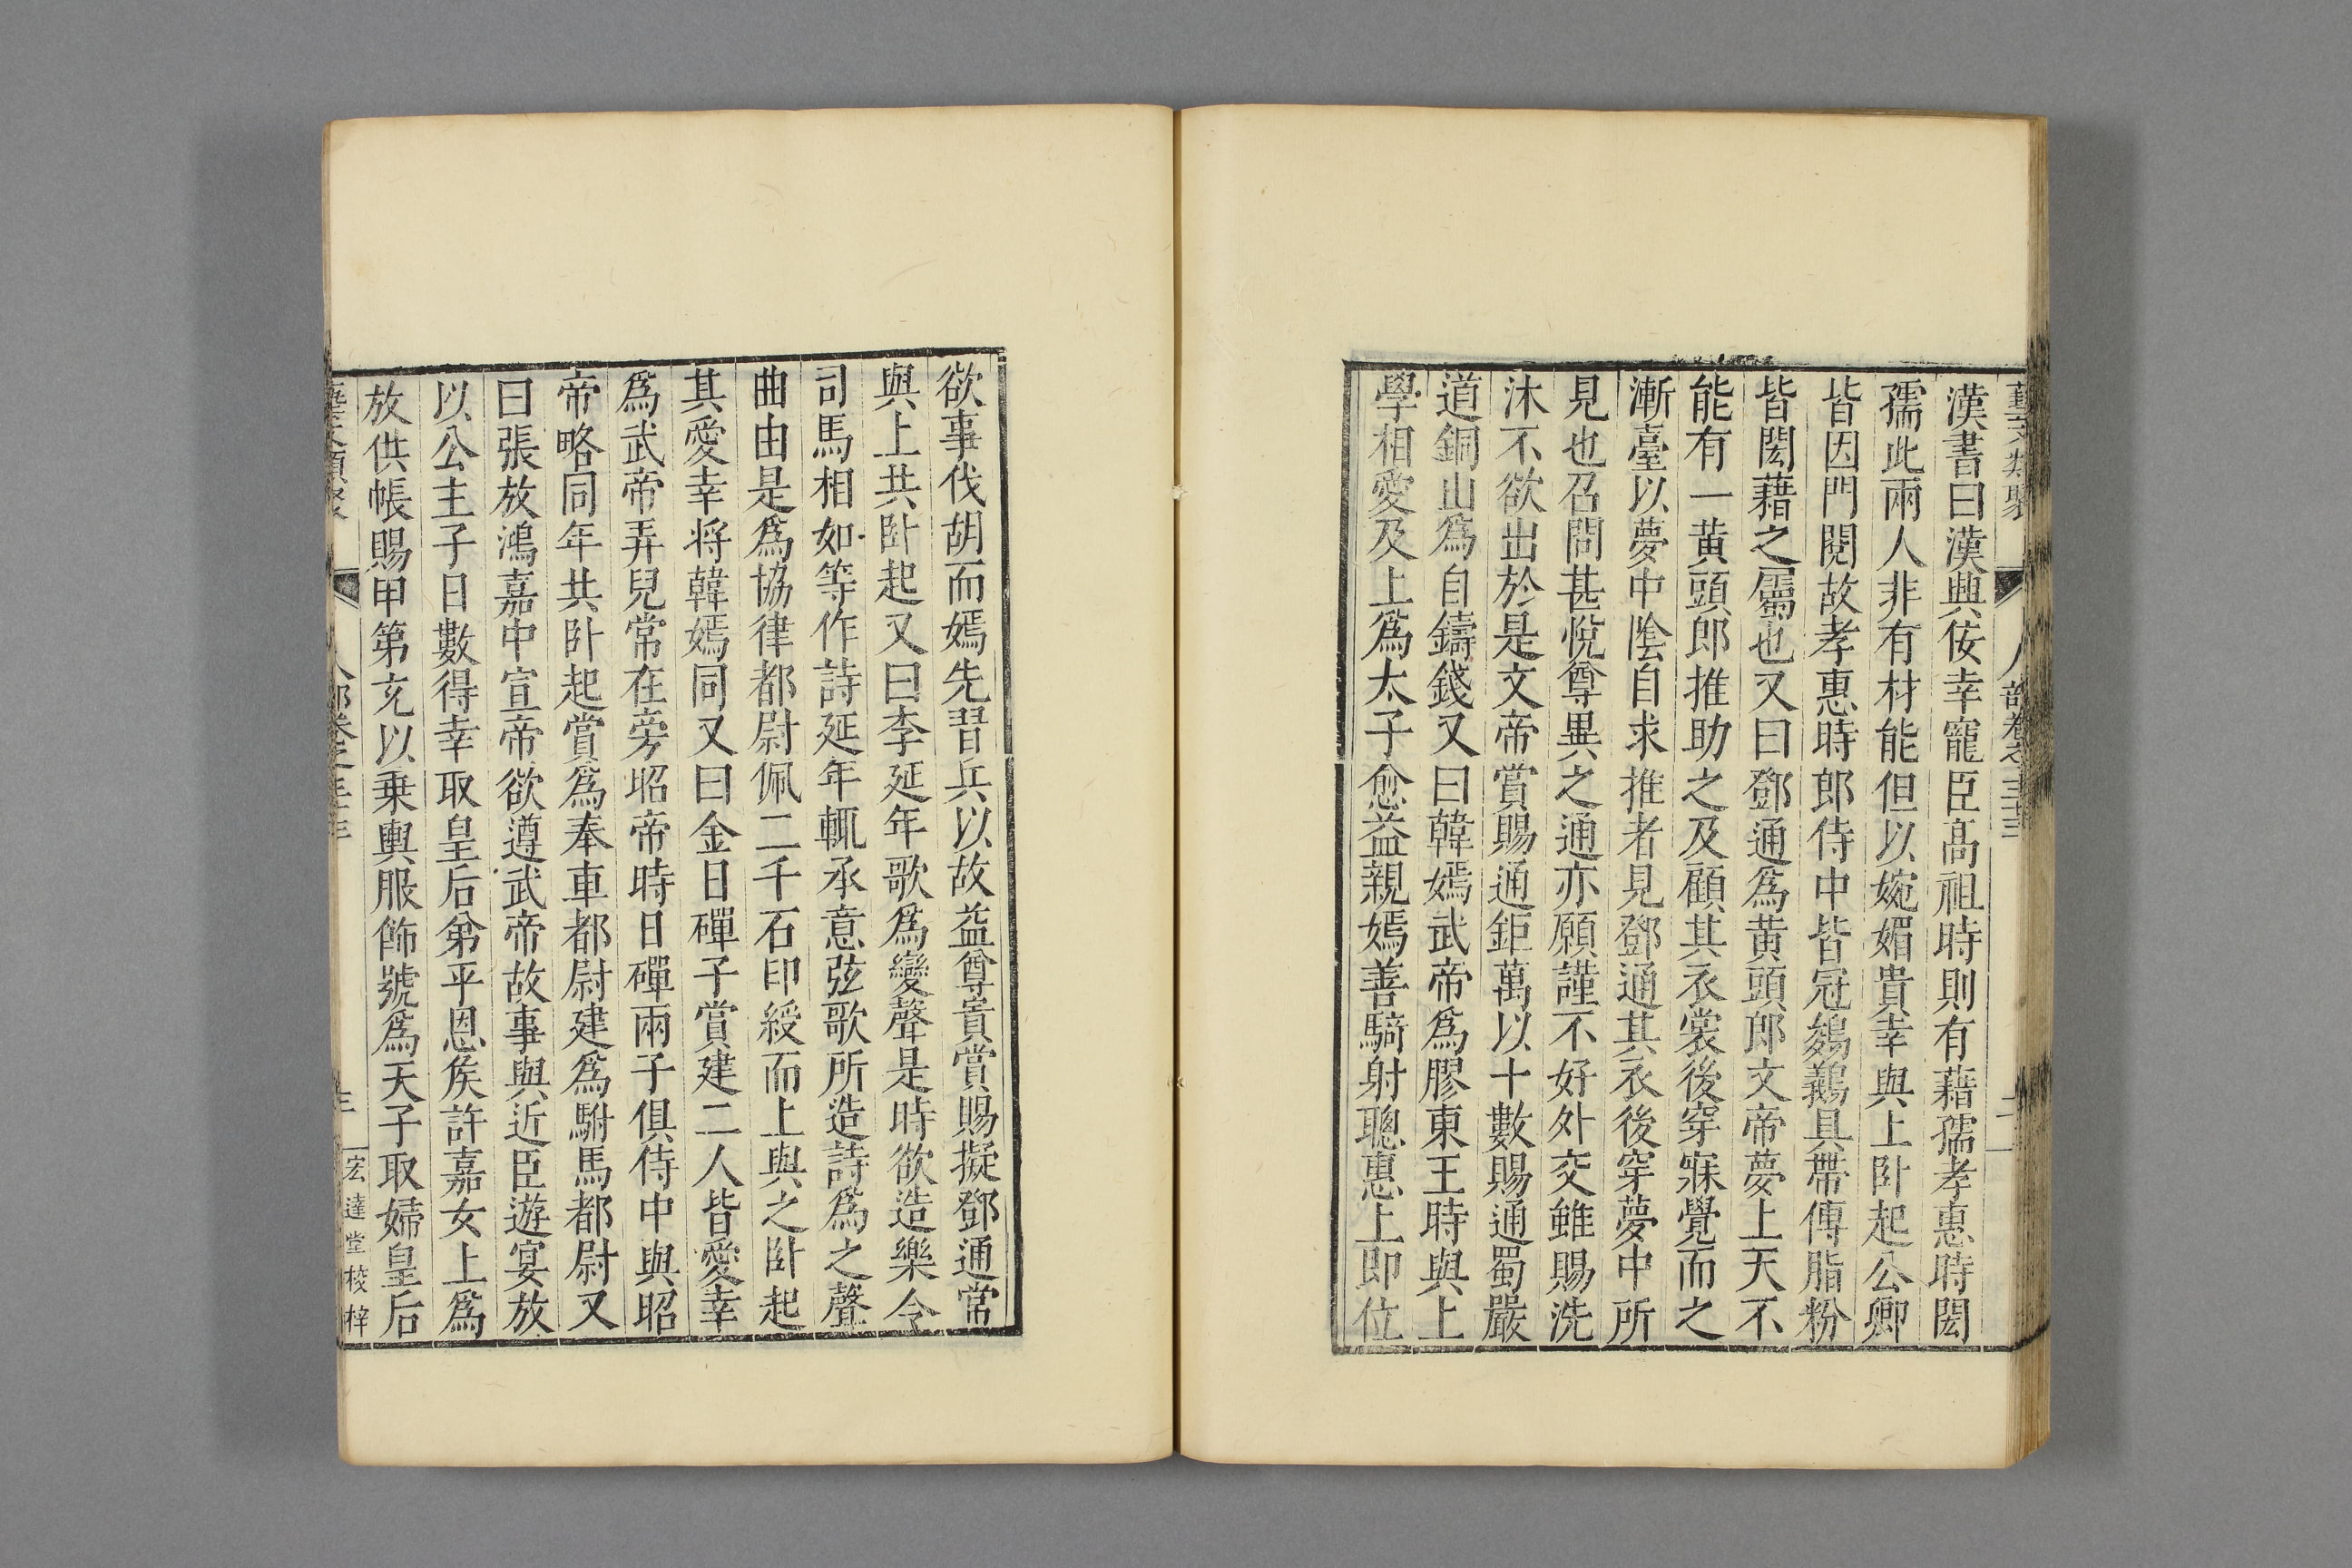 藝文類聚 人部卷之三十三 二
漢書曰漢興佞幸寵臣髙祖時則有藉孺孝惠時閎
孺此兩人非有材能但以婉媚貴幸與上卧起公卿
皆因門閱故孝惠時郎侍中皆冠鵕鸃具帶傅脂粉
皆閎藉之屬也又曰鄧通爲黄頭郎文帝夢上天不
能有一黄頭郎推助之及顧其衣裳後穿寐覺而之
漸臺以夢中陰自求推者見鄧通其衣後穿夢中所
見也召問甚悅尊異之通亦願謹不好外交雖賜洗
沐不欲出於是文帝賞賜通鉅萬以十數賜通蜀嚴
道銅山爲自鑄錢又曰韓嫣武帝爲膠東王時與上
學相愛及上爲太子愈益親嫣善騎射聰惠上即位
欲事伐胡而嫣先習兵以故益尊貴賞賜擬鄧通常
與上共卧起又曰李延年歌爲變聲是時欲造樂令
司馬相如等作詩延年輒承意弦歌所造詩爲之聲
曲由是爲協律都尉佩二千石印綬而上與之卧起
其愛幸將韓嫣同又曰金日磾子賞建二人皆愛幸
爲武帝弄兒常在旁昭帝時日磾兩子俱侍中與昭
帝略同年共卧起賞爲奉車都尉建爲駙馬都尉又
曰張放鴻嘉中宣帝欲遵武帝故事與近臣遊宴放
以公主子日數得幸取皇后弟平恩矦許嘉女上爲
放供帳賜甲第充以乗輿服飾號爲天子取婦皇后
藝文類聚 人部卷之三十三 三 宏達堂校梓